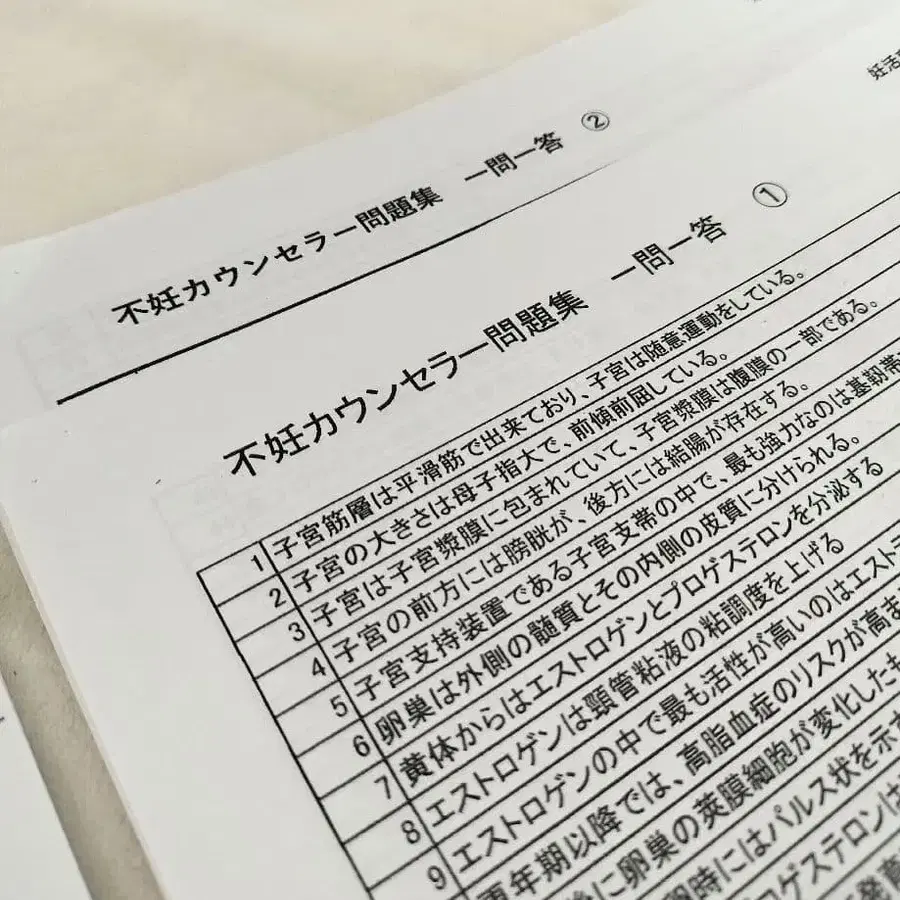 妊活
不妊カウンセラー問題集 一問一答 ②
不妊カウンセラー問題集 一問一答 ①
1 子宮筋層は平滑筋で出来ており、子宮は随意運動をしている。
2 子宮の大きさは母子指大で、前傾前屈している。
3 子宮は子宮漿膜に包まれていて、子宮漿膜は腹膜の一部である。
4 子宮の前方には膀胱が、後方には結腸が存在する。
5 子宮支持装置である子宮支帯の中で、最も強力なのは基靭帯
6 卵巣は外側の髄質とその内側の皮質に分けられる。
7 黄体からはエストロゲンとプロゲステロンを分泌する
8 エストロゲンは頸管粘液の粘調度を上げる
9 エストロゲンの中で最も活性が高いのはエスト
更年期以降では、高脂血症のリスクが高ま
後に卵巣の莢膜細胞が変化したも
卵時にはパルス状を示
プロゲステロンは
発育